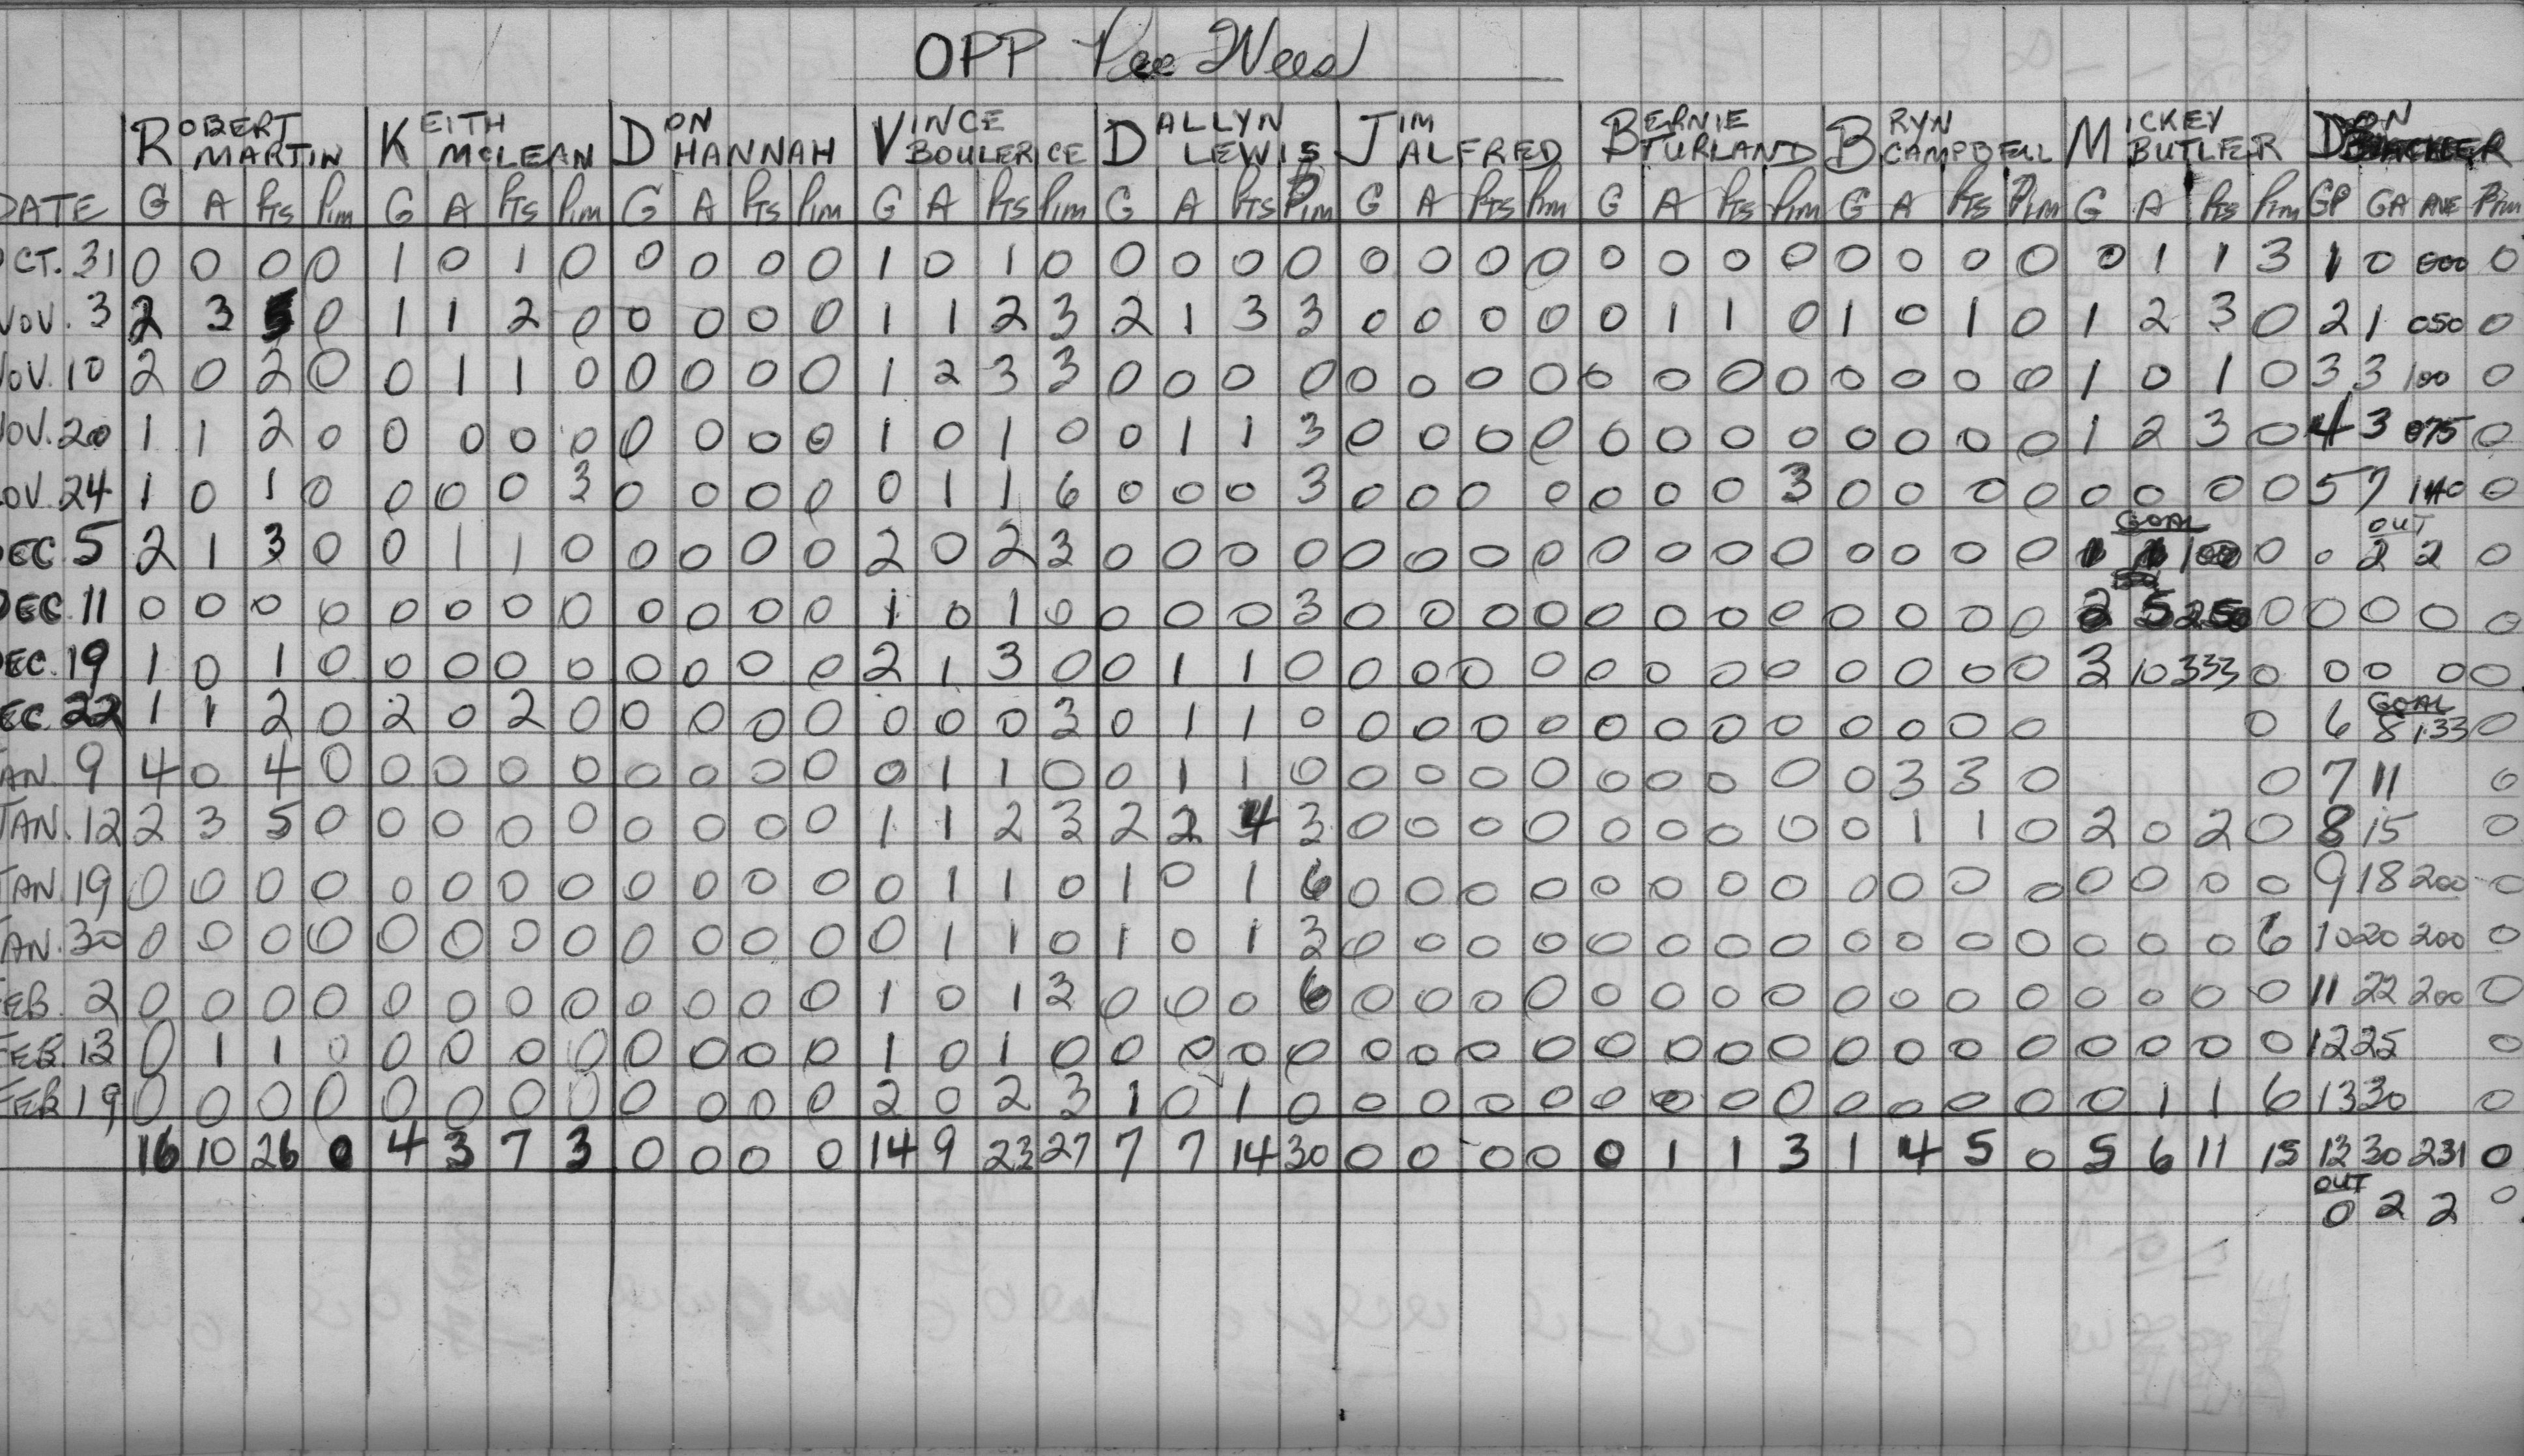 OPP Pee Wees
ROBERT MARTIN KEITH MCLEAN DON HANNAH VINCE BOULERICE DALLYN LEWIS JIM ALFRED BERNIE TURLAND BRYN CAMPBELL MICKEY BUTLER DON
DATE G A Pts Pim G A Pts Pim G A Pts Pim G A Pts Pim G A Pts Pim G A Pts Pim G A Pts Pim G A Pts Pim G A Pts Pim GP GA AVE Pim
OCT. 31 0 0 0 0 1 0 1 0 0 0 0 0 1 0 1 0 0 0 0 0 0 0 0 0 0 0 0 0 0 0 0 0 0 1 1 3 1 0 000 0
NOV. 3 2 3 5 0 1 1 2 0 0 0 0 0 1 1 2 3 2 1 3 3 0 0 0 0 0 1 1 0 1 0 1 0 1 2 3 0 2 1 050 0
NOV. 10 2 0 2 0 0 1 1 0 0 0 0 0 1 2 3 3 0 0 0 0 0 0 0 0 0 0 0 0 0 0 0 0 1 0 1 0 3 3 100 0
NOV. 20 1 1 2 0 0 0 0 0 0 0 0 0 1 0 1 0 0 1 1 3 0 0 0 0 0 0 0 0 0 0 0 0 1 2 3 0 4 3 075 0
NOV. 24 1 0 1 0 0 0 0 3 0 0 0 0 0 1 1 6 0 0 0 3 0 0 0 0 0 0 0 3 0 0 0 0 0 0 0 0 5 7 140 0
GOAL OUT
DEC 5 2 1 3 0 0 1 1 0 0 0 0 0 2 0 2 3 0 0 0 0 0 0 0 0 0 0 0 0 0 0 0 0 1 1 100 0 0 2 2 0
DEC. 11 0 0 0 0 0 0 0 0 0 0 0 0 1 0 1 0 0 0 0 3 0 0 0 0 0 0 0 0 0 0 0 0 2 5 250 0 0 0 0 0
DEC. 19 1 0 1 0 0 0 0 0 0 0 0 0 2 1 3 0 0 1 1 0 0 0 0 0 0 0 0 0 0 0 0 0 3 10 333 0 0 0 0 0
GOAL
DEC. 22 1 1 2 0 2 0 2 0 0 0 0 0 0 0 0 3 0 1 1 0 0 0 0 0 0 0 0 0 0 0 0 0 0 6 8 1.33 0
JAN. 9 4 0 4 0 0 0 0 0 0 0 0 0 0 1 1 0 0 1 1 0 0 0 0 0 0 0 0 0 0 3 3 0 0 7 11 0
JAN. 12 2 3 5 0 0 0 0 0 0 0 0 0 1 1 2 3 2 2 4 3 0 0 0 0 0 0 0 0 0 1 1 0 2 0 2 0 8 15 0
JAN. 19 0 0 0 0 0 0 0 0 0 0 0 0 0 1 1 0 1 0 1 6 0 0 0 0 0 0 0 0 0 0 0 0 0 0 0 0 9 18 200 0
JAN. 30 0 0 0 0 0 0 0 0 0 0 0 0 0 1 1 0 1 0 1 3 0 0 0 0 0 0 0 0 0 0 0 0 0 0 0 6 10 20 200 0
FEB. 2 0 0 0 0 0 0 0 0 0 0 0 0 1 0 1 3 0 0 0 6 0 0 0 0 0 0 0 0 0 0 0 0 0 0 0 0 11 22 200 0
FEB. 13 0 1 1 0 0 0 0 0 0 0 0 0 1 0 1 0 0 0 0 0 0 0 0 0 0 0 0 0 0 0 0 0 0 0 0 0 12 25 0
FEB 19 0 0 0 0 0 0 0 0 0 0 0 0 2 0 2 3 1 0 1 0 0 0 0 0 0 0 0 0 0 0 0 0 0 1 1 6 13 30 0
16 10 26 0 4 3 7 3 0 0 0 0 14 9 23 27 7 7 14 30 0 0 0 0 0 1 1 3 1 4 5 0 5 6 11 15 13 30 231 0
OUT
0 2 2 0